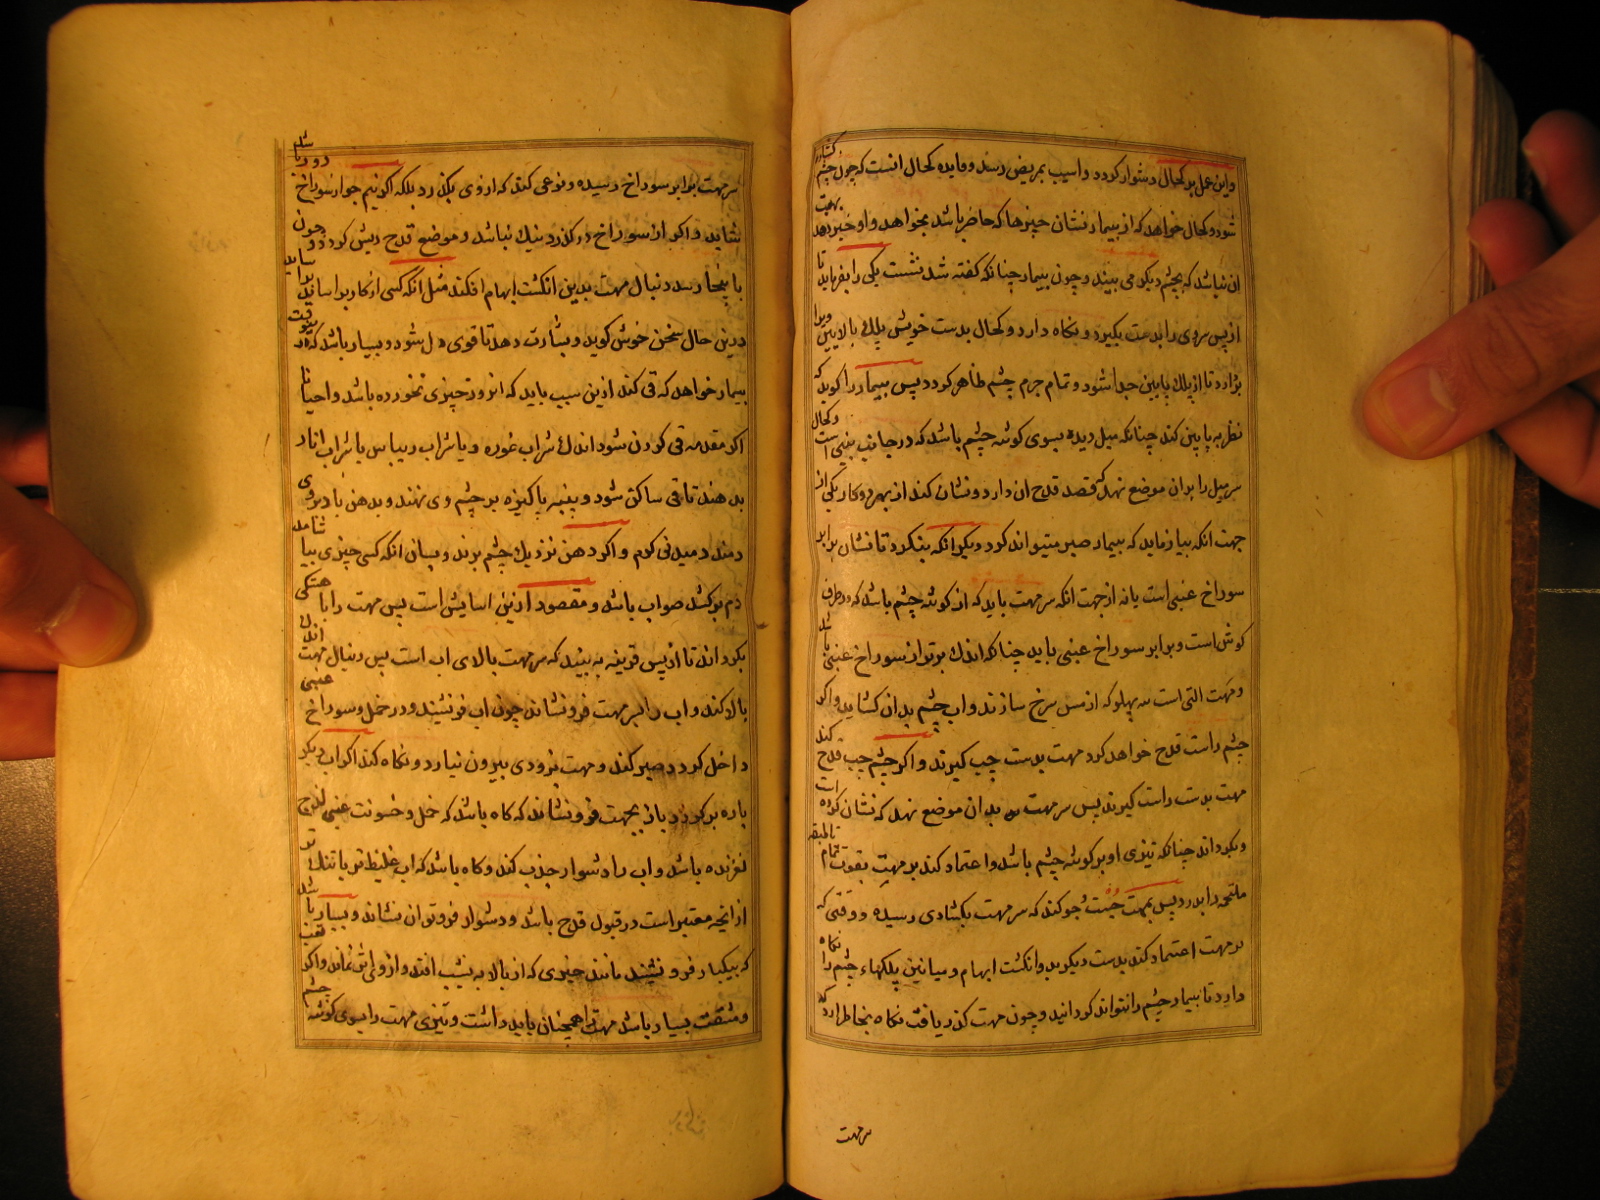 واین عمل بر کحال دشوار کردد واسیب بمریض رسد وفایده کحال انست که چون چشم کشاده
شود وکحال خواهد که از بیمار نشان چیزها که حاضر باشد بخواهد واو خبر دهد بهیت
ان نباشد که بچشم دیکر می بیند وچون بیمار چنانکه کفته شد نشست یکی را بفرماید تا
از پس سر وی را بدست بکیرد ونکاه دارد وکحال بدست خویش پلک بالایین ویرا
بردارد تا از پلک پایین جدا شود وتمام جرم چشم ظاهر کردد پس بیمار را کوید که
نظر به پایین کند چنانکه میل دیده بسوی کوشه چشم باشد که در جانب بینی است وکحال
سر میل را بران موضع نهد که قصد قدح ان دارد ونشان کند از بهر دو کار یکی از
جهت انکه بیازماید که بیمار صبر میتواند کرد ودیکر انکه بنکرد تا نشان برابر
سوراخ عنبی است یا نه از جهت انکه سر مهت باید که از کوشه چشم باشد که در طرف
کوش است وبرابر سوراخ عنبی باید چنانکه اندک برتر از سوراخ عنبی باشد
ومهت التی است سه پهلو که از مس سرخ سازند واب چشم بدان کشاید واکر
چشم راست قدح خواهد کرد مهت بدست چپ کیرند واکر چشم چپ قدح کند
مهت بدست راست کیرند پس سر مهت بدان موضع نهد که نشان کرده است
وبکرداند چنانکه تیزی او بر کوشه چشم باشد واعتماد کند بر مهت بقوت تمام تا طبقه
ملتحمه را بدرد پس بمهت جست وجو کند که سر مهت بکشادی رسیده ووقتی که
بر مهت اعتماد کند بدست دیکر باید وانکشت ابهام ومیانین پلکهاء چشم را نکاه
دارد تا بیمار چشم را نتواند کردانید وچون مهت کذر یافت نکاه بخاطر ارد که
سر مهت
سر مهت برابر سوراخ رسیده ونوعی کند که ازوی بکذرد بلکه اکر نیم جو از سوراخ دور باشد
شاید واکر از سوراخ در کذرد نیک نباشد وموضع قدح ریش کردد وچون
باینجا رسد دنبال مهت بدین انکشت ابهام افکند مثل انکه کسی از کار براساید باید
درین حال سخن خوش کوید وبشارت دهد تا قوی دل شود وبسیار باشد که در ین وقت
بیمار خواهد که قی کند ازین سبب باید که انروز چیزی نخورده باشد واحیانا
اکر مقدمه قی کردن شود اندک شراب غوره ویا شراب ریباس یا شراب انار
بدهند تا قی ساکن شود وپنبه پاکیزه بر چشم وی نهند وبدهن باد بروی
دمند دمیدنی کرم واکر دهن نزدیک چشم برند وبسان انکه کسی چیزی بیاشامد
دم برکشد صواب باشد ومقصود ازین اسایش است پس مهت را باهستکی
بکرداند تا از پس قرنیه به بیند که سر مهت بالای اب است پس دنبال مهت اندک
بالا کند واب را بسر مهت فرو نشاند چون اب فرو نشیند ودر خمل وسوراخ عنبی
داخل کردد صبر کند ومهت بزودی بیرون نیارد ونکاه کند اکر اب دیکر
باره برکردد باز بمهت فرو نشاند که کاه باشد که خمل وخشونت عنبی لزج
لغزنده باشد واب را دشوار جذب کند وکاه باشد که اب غلیظ تر یا تنک تر
از انچه معتبر است در قبول قدح باشد ودشوار فرو توان نشاند وبسیار باشد
که بیکبار فرو نشیند مانند چیزی که از بالا به نشیب افتد وازوی اثر نماند واکر تعب
ومشقت بسیار باشد مهت را همچنان باید داشت وتیزی مهت را بسوی کوشه چشم